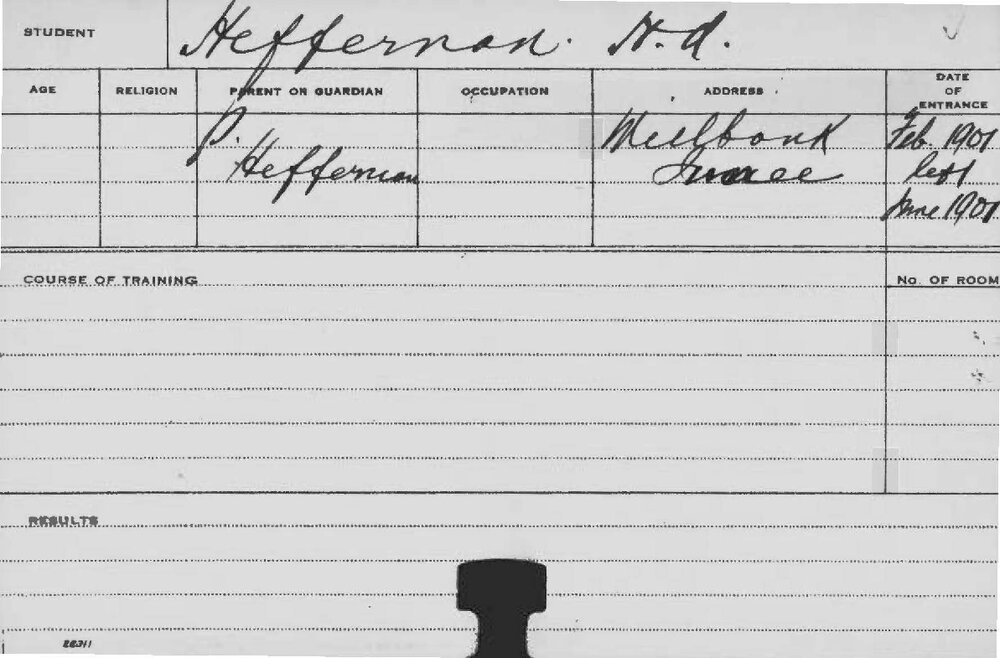 STUDENT Heffernan. H.A.
AGE RELIGION PARENT OR GUARDIAN OCCUPATION ADDRESS DATE OF ENTRANCE
P. Heffernan Millbank Junee Feb. 1901 left June 1901
COURSE OF TRAINING No. OF ROOM
RESULTS